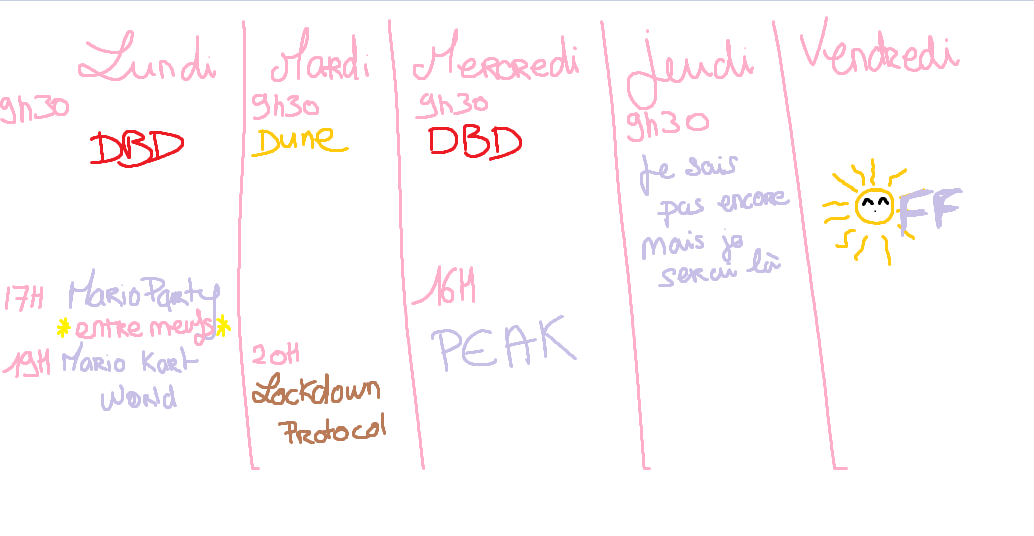 Lundi
9h30
DBD
17H MarioParty
*entre meufs*
19H Mario Kart
World
Mardi
9h30
Dune
20H
Lockdown
Protocol
Mercredi
9h30
DBD
16H
PEAK
Jeudi
9h30
Je sais
pas encore
mais je
serai là
Vendredi
OFF